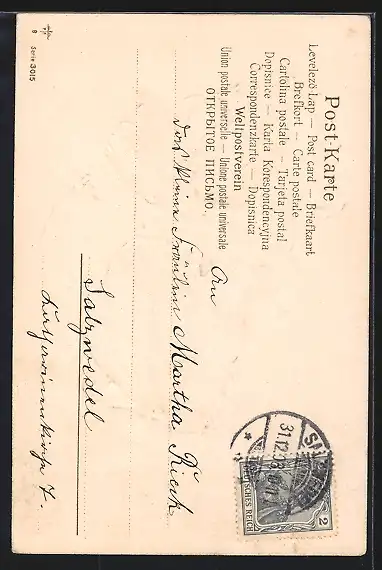 Post-Karte
Levelező-Lap — Post card — Briefkaart
Brefkort — Carte postale
Cartolina postale — Tarjeta postal
Dopisnice — Karta Korespondencyjna
Correspondenzkarte — Dopisnica
Weltpostverein
Union postale universelle — Unione postale universale
ОТКРЫТОЕ ПИСЬМО.
An
das kleine Fräulein Martha Rieck
Salzwedel
7.
8 Serie 3015
31.12.
DEUTSCHES REICH
2